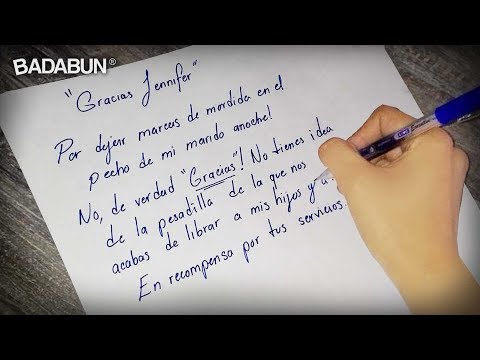 BADABUN®
"Gracias Jennifer"
Por dejar marcas de mordida en el
pecho de mi marido anoche!
No, de verdad "Gracias"! No tienes idea
de la pesadilla de la que nos
acabas de librar a mis hijos y a
En recompensa por tus servicios.